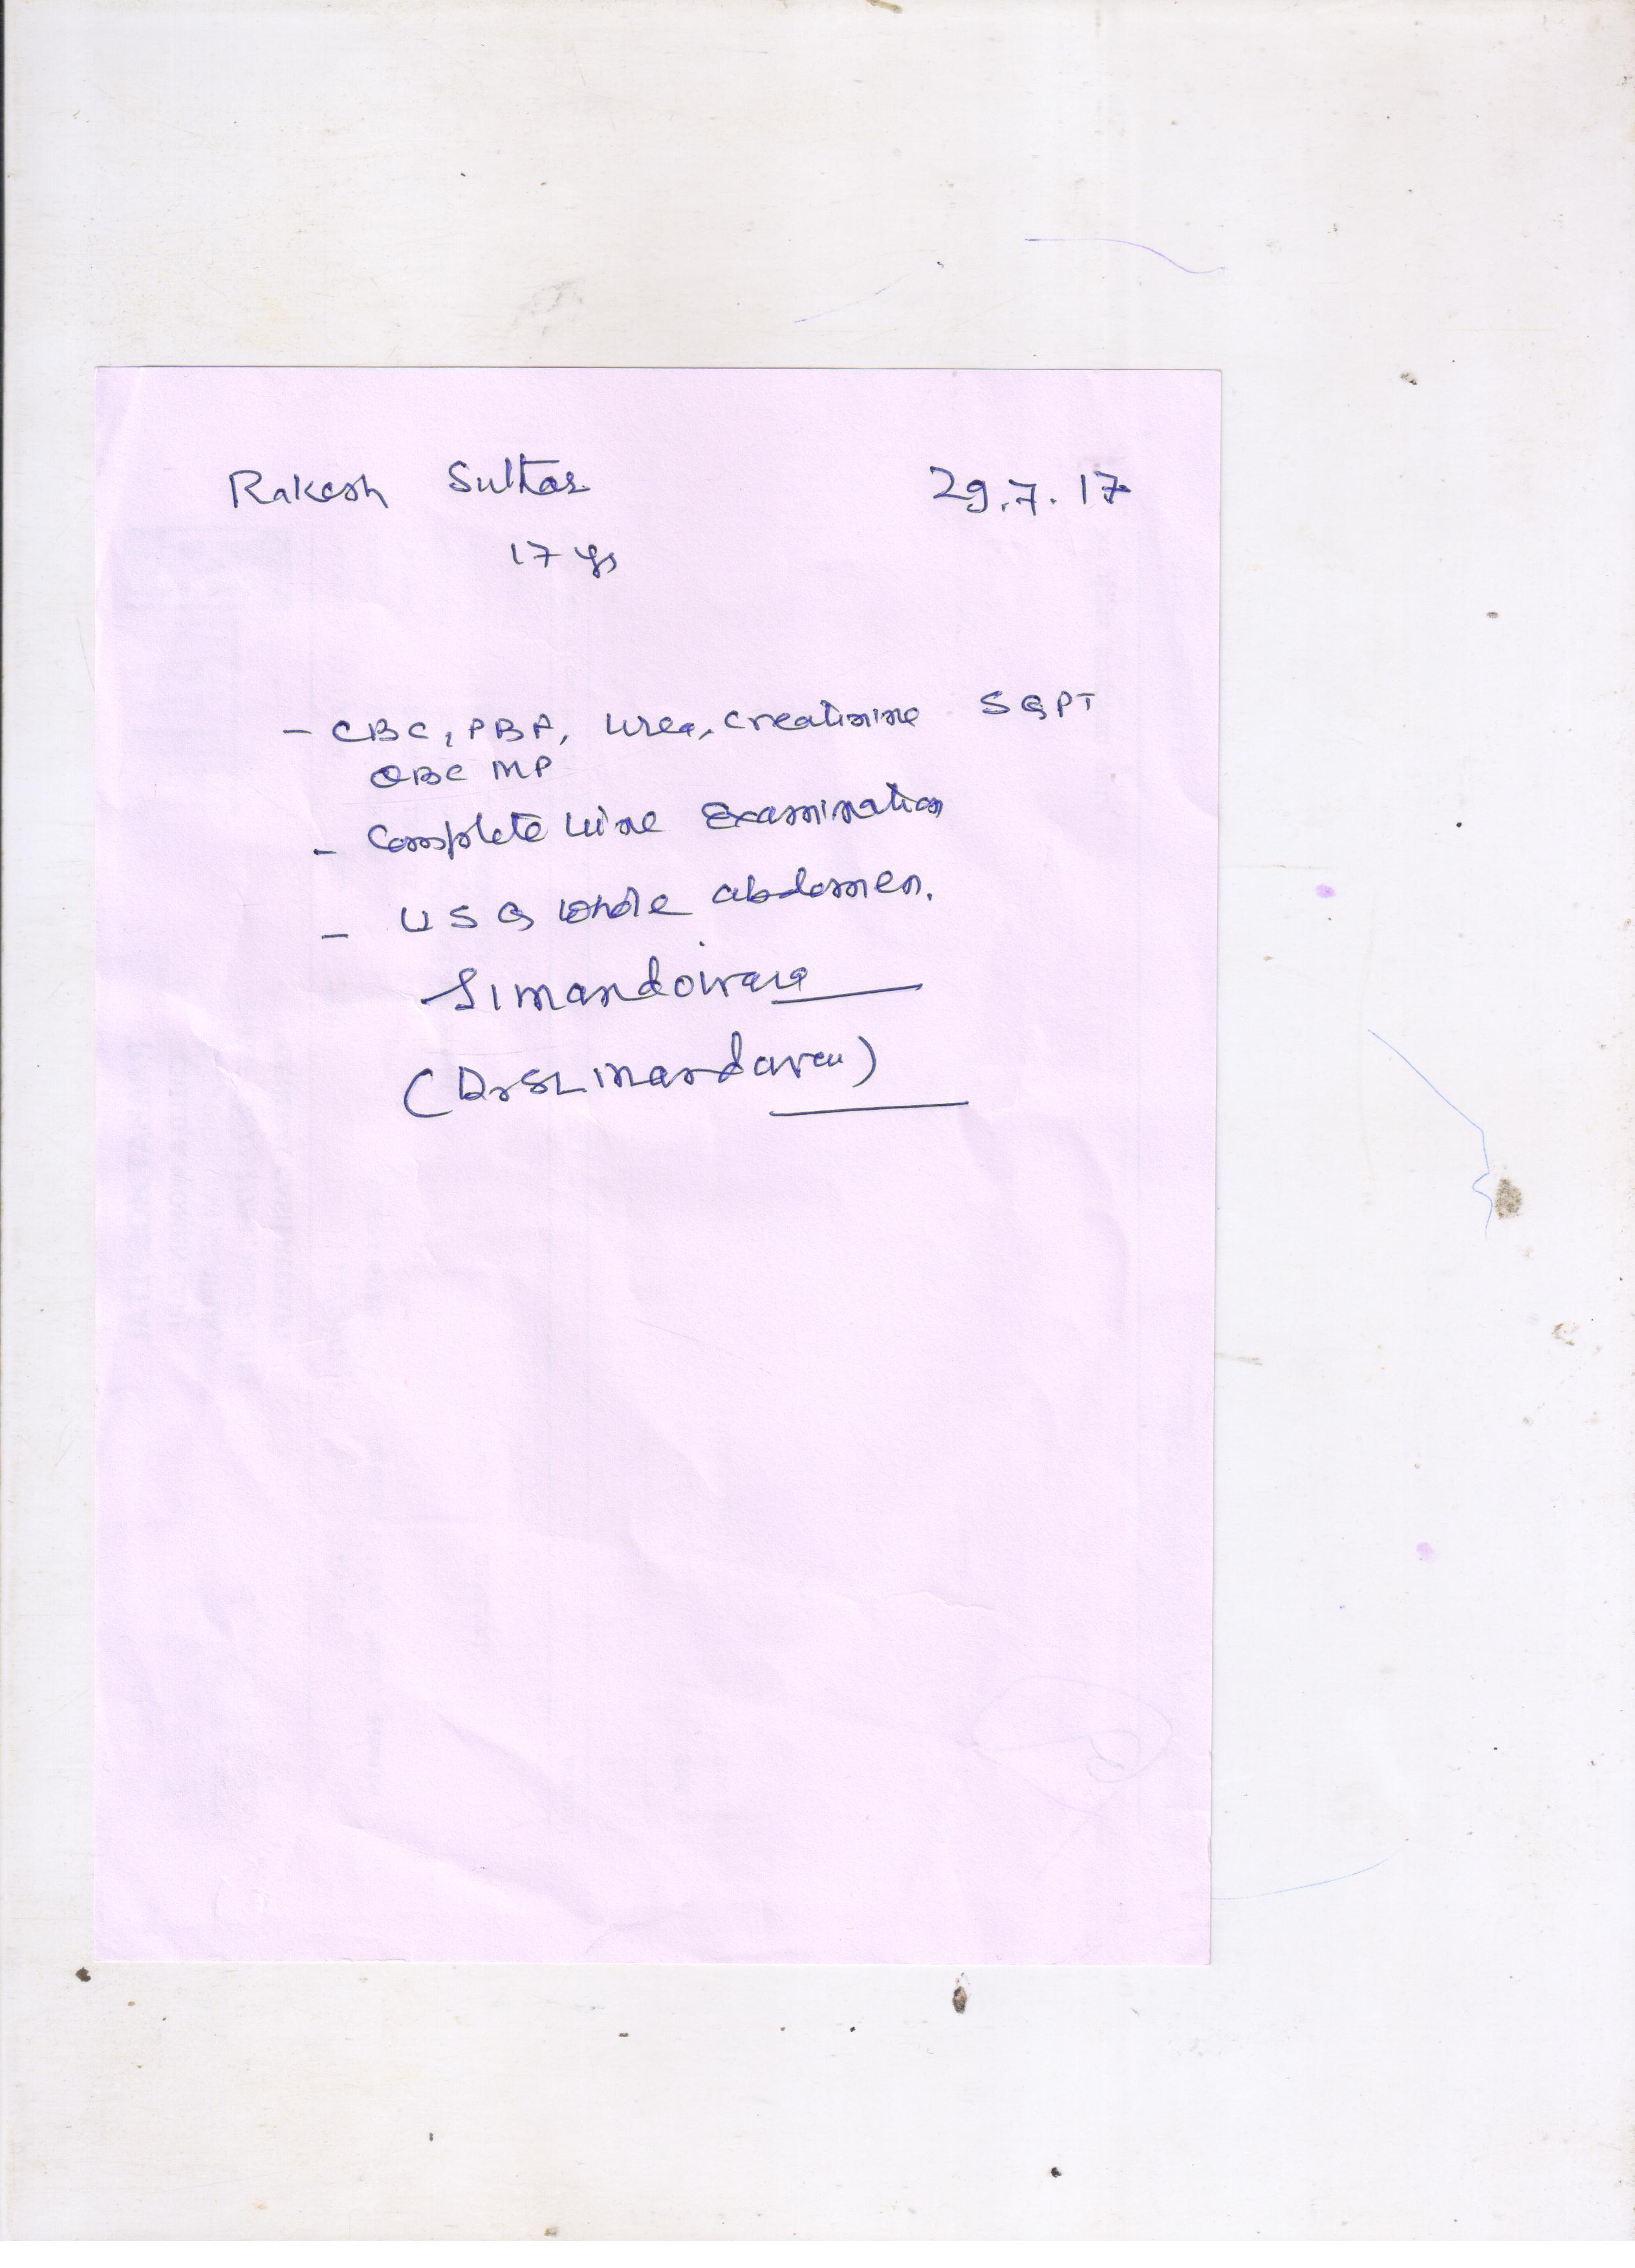 Rakesh Suthar 29.7.17
17 yrs
- CBC, PBF, Urea, Creatinine SGPT
QBC MP
- Complete Urine Examination
- USG whole abdomen.
SL Mandowara
(Dr SL Mandowara)